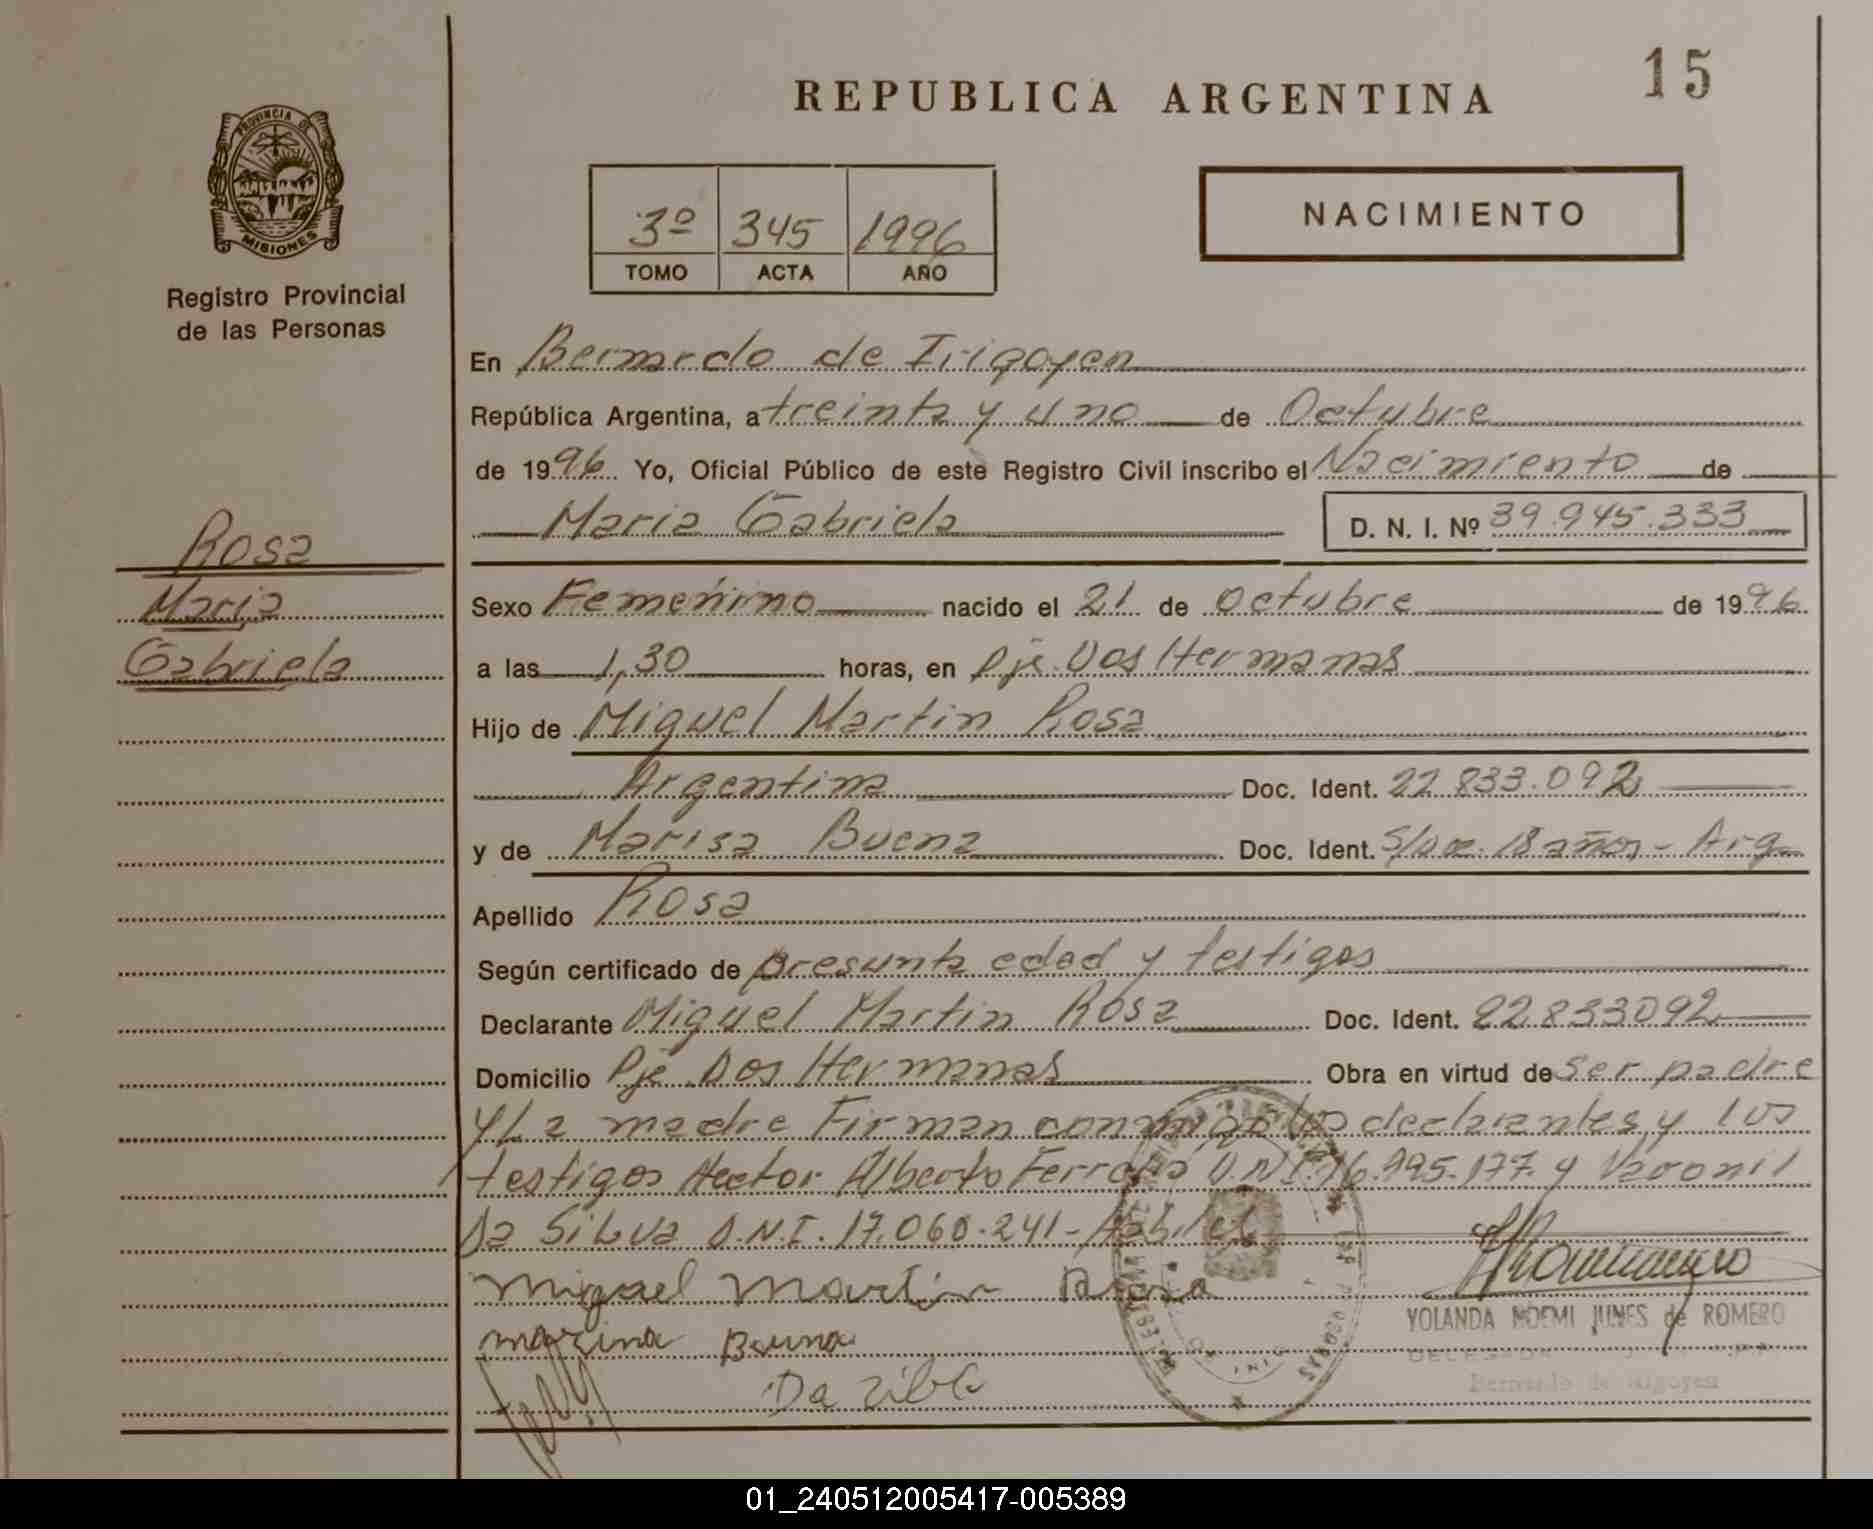 15
REPUBLICA ARGENTINA
PROVINCIA DE
MISIONES
Registro Provincial
de las Personas
3º 345 1996
TOMO ACTA AÑO
NACIMIENTO
En Bernardo de Irigoyen
República Argentina, a treinta y uno de Octubre
de 1996. Yo, Oficial Público de este Registro Civil inscribo el Nacimiento de
Maria Gabriela D. N. I. Nº 39.945.333
Rosa
Maria
Gabriela
Sexo Femenino nacido el 21 de octubre de 1996
a las 1,30 horas, en Pje. Dos Hermanas
Hijo de Miguel Martin Rosa
Argentina Doc. Ident. 22 833.092
y de Marisa Buena Doc. Ident. S/Doc. 18 años - Arg
Apellido Rosa
Según certificado de presunta edad y testigos
Declarante Miguel Martin Rosa Doc. Ident. 22833092
Domicilio Pje Dos Hermanas Obra en virtud de ser padre
y La madre Firman conmigo los declarantes y los
testigos Hector Alberto D.N.I. 16.995.177 y
Da Silva D.N.I. 17.060.241 -
Miguel Martin Rosa
Buena
Da
YOLANDA NOEMI JUNES de ROMERO
DELEGADA
Bernardo de Irigoyen
01_240512005417-005389